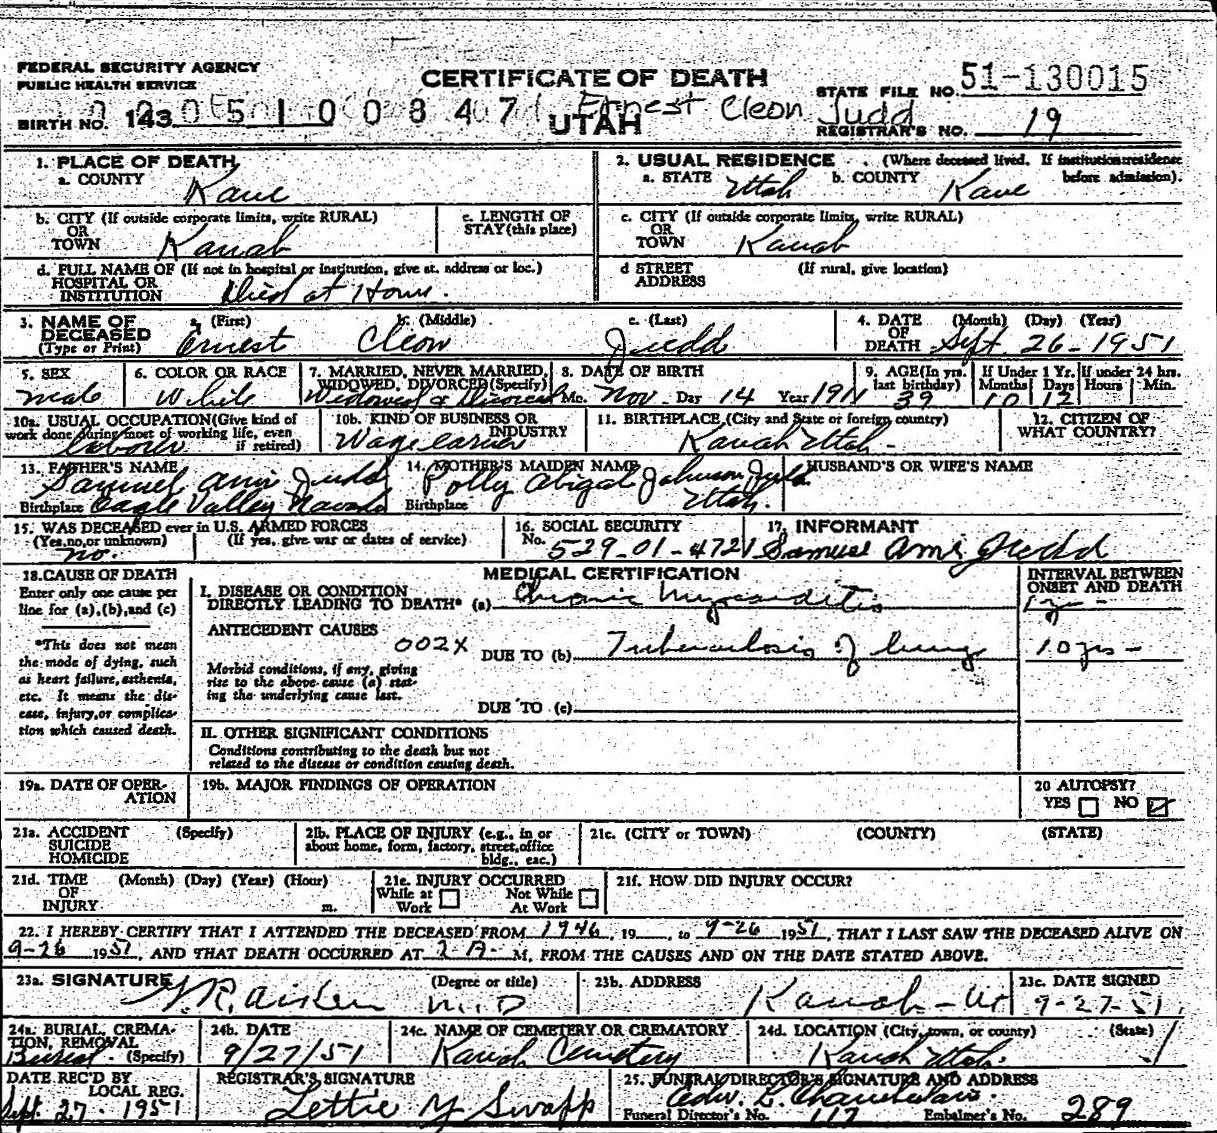 FEDERAL SECURITY AGENCY
PUBLIC HEALTH SERVICE
CERTIFICATE OF DEATH
STATE FILE NO. 51-130015
BIRTH NO. 143 Ernest Cleon Judd
UTAH
REGISTRAR'S NO. 19
1. PLACE OF DEATH
a. COUNTY Kane
2. USUAL RESIDENCE (Where deceased lived. If institution:residence before admission).
a. STATE Utah b. COUNTY Kane
b. CITY (If outside corporate limits, write RURAL) OR TOWN Kanab
c. LENGTH OF STAY (this place)
c. CITY (If outside corporate limits, write RURAL) OR TOWN Kanab
d. FULL NAME OF (If not in hospital or institution, give st. address or loc.) HOSPITAL OR INSTITUTION Died at Home.
d STREET ADDRESS (If rural, give location)
3. NAME OF DECEASED (Type or Print) a. (First) Ernest b. (Middle) Cleon c. (Last) Judd
4. DATE OF DEATH (Month) (Day) (Year) Sept. 26-1951
5. SEX male
6. COLOR OR RACE White
7. MARRIED, NEVER MARRIED, WIDOWED, DIVORCED (Specify) Divorced
8. DATE OF BIRTH Mo. Nov. Day 14 Year 1911
9. AGE (In yrs. last birthday) 39 If Under 1 Yr. Months 10 Days 12 If under 24 hrs. Hours Min.
10a. USUAL OCCUPATION (Give kind of work done during most of working life, even if retired) Labour
10b. KIND OF BUSINESS OR INDUSTRY Wage earner
11. BIRTHPLACE (City and State or foreign country) Kanab Utah
12. CITIZEN OF WHAT COUNTRY?
13. FATHER'S NAME Samuel Ami Judd
Birthplace Eagle Valley Navada
14. MOTHER'S MAIDEN NAME Polly Abigal Johnson Judd
Birthplace Utah.
HUSBAND'S OR WIFE'S NAME
15. WAS DECEASED ever in U.S. ARMED FORCES (Yes, no, or unknown) (If yes, give war or dates of service) no.
16. SOCIAL SECURITY No. 529-01-4721
17. INFORMANT Samuel Ami Judd
18. CAUSE OF DEATH Enter only one cause per line for (a),(b),and (c)
*This does not mean the mode of dying, such as heart failure, asthenia, etc. It means the disease, injury, or complication which caused death.
MEDICAL CERTIFICATION
INTERVAL BETWEEN ONSET AND DEATH
I. DISEASE OR CONDITION DIRECTLY LEADING TO DEATH* (a) Chronic Myocarditis
ANTECEDENT CAUSES 002X
DUE TO (b) Tuberculosis of lungs 10 yrs-
Morbid conditions, if any, giving rise to the above cause (a) stating the underlying cause last.
DUE TO (c)
II. OTHER SIGNIFICANT CONDITIONS
Conditions contributing to the death but not related to the disease or condition causing death.
19a. DATE OF OPERATION
19b. MAJOR FINDINGS OF OPERATION
20 AUTOPSY? YES NO
21a. ACCIDENT SUICIDE HOMICIDE (Specify)
21b. PLACE OF INJURY (e.g., in or about home, form, factory, street, office bldg., eac.)
21c. (CITY or TOWN) (COUNTY) (STATE)
21d. TIME OF INJURY (Month) (Day) (Year) (Hour) m.
21e. INJURY OCCURRED While at Work Not While At Work
21f. HOW DID INJURY OCCUR?
22. I HEREBY CERTIFY THAT I ATTENDED THE DECEASED FROM 1946, 19___, to 9-26 1951, THAT I LAST SAW THE DECEASED ALIVE ON
9-26 1951, AND THAT DEATH OCCURRED AT 2 A M, FROM THE CAUSES AND ON THE DATE STATED ABOVE.
23a. SIGNATURE Aiken (Degree or title) M.D
23b. ADDRESS Kanab - Ut
23c. DATE SIGNED 9-27-51
24a. BURIAL, CREMATION, REMOVAL (Specify) Burial.
24b. DATE 9/27/51
24c. NAME OF CEMETERY OR CREMATORY Kanab Cemetery
24d. LOCATION (City, town, or county) (State) Kanab Utah.
DATE REC'D BY LOCAL REG. Sept. 27. 1951
REGISTRAR'S SIGNATURE Lettie Y Swapp
25. FUNERAL DIRECTOR'S SIGNATURE AND ADDRESS Edw. E. Chamberlain.
Funeral Director's No. 117 Embalmer's No. 289